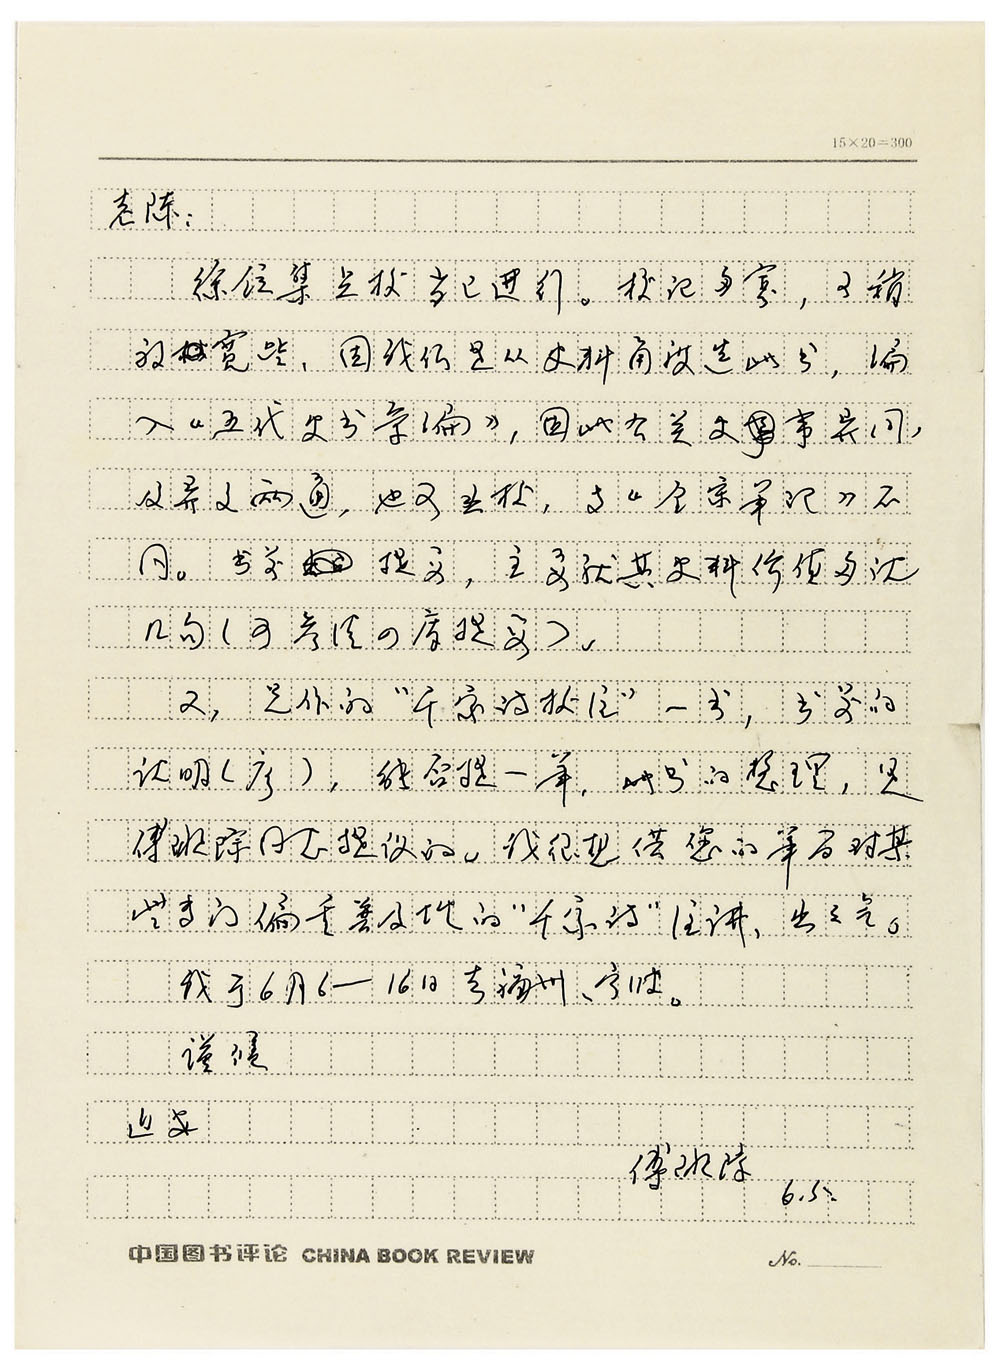 15×20=300
老陈：
徐铉集点校当已进行。校记多寡，可稍
放宽些，因我们是从史料角度选此书，编
入《五代史书汇编》，因此有关史事异同，
及异文两通，也可出校，与《全宋笔记》不
同。书前提要，主要就其史料价值多说
几句（可参读四库提要）。
又，兄作的“千家诗校注”一书，书前的
说明（序），能否提一笔，此书的整理，是
傅璇琮同志提议的。我很想借您的笔后对某
些专门偏重普及性的“千家诗”注讲，出之气。
我于6月6—16日去福州、宁波。
谨候
近安
傅璇琮
6.5.
中国图书评论 CHINA BOOK REVIEW
No.